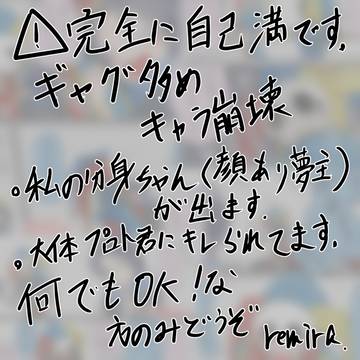 ⚠完全に自己満です,
ギャグ多め
キャラ崩壊
。私の分身ちゃん(顔あり夢主)
が出ます.
。大体プロト君にキレられてます.
何でもOK!な
方のみどうぞ remira.